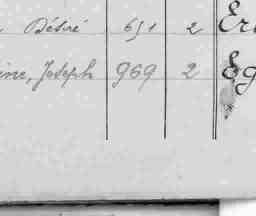 Désiré 651 2 Er
ine, Joseph 969 2 Eg